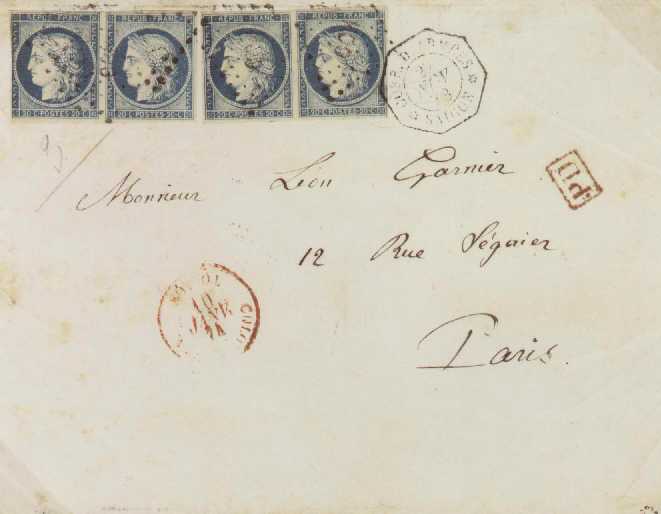 REPUB. FRANC. REPUB. FRANC. REPUB. FRANC. REPUB. FRANC.
20 C. POSTES 20 C. 20 C. POSTES 20 C. 20 C. POSTES 20 C. 20 C. POSTES 20 C.
CORR. D. ARMÉES
SAIGON
PD
Monsieur Léon Garnier
12 Rue Séguier
Paris.
10
JANV
74